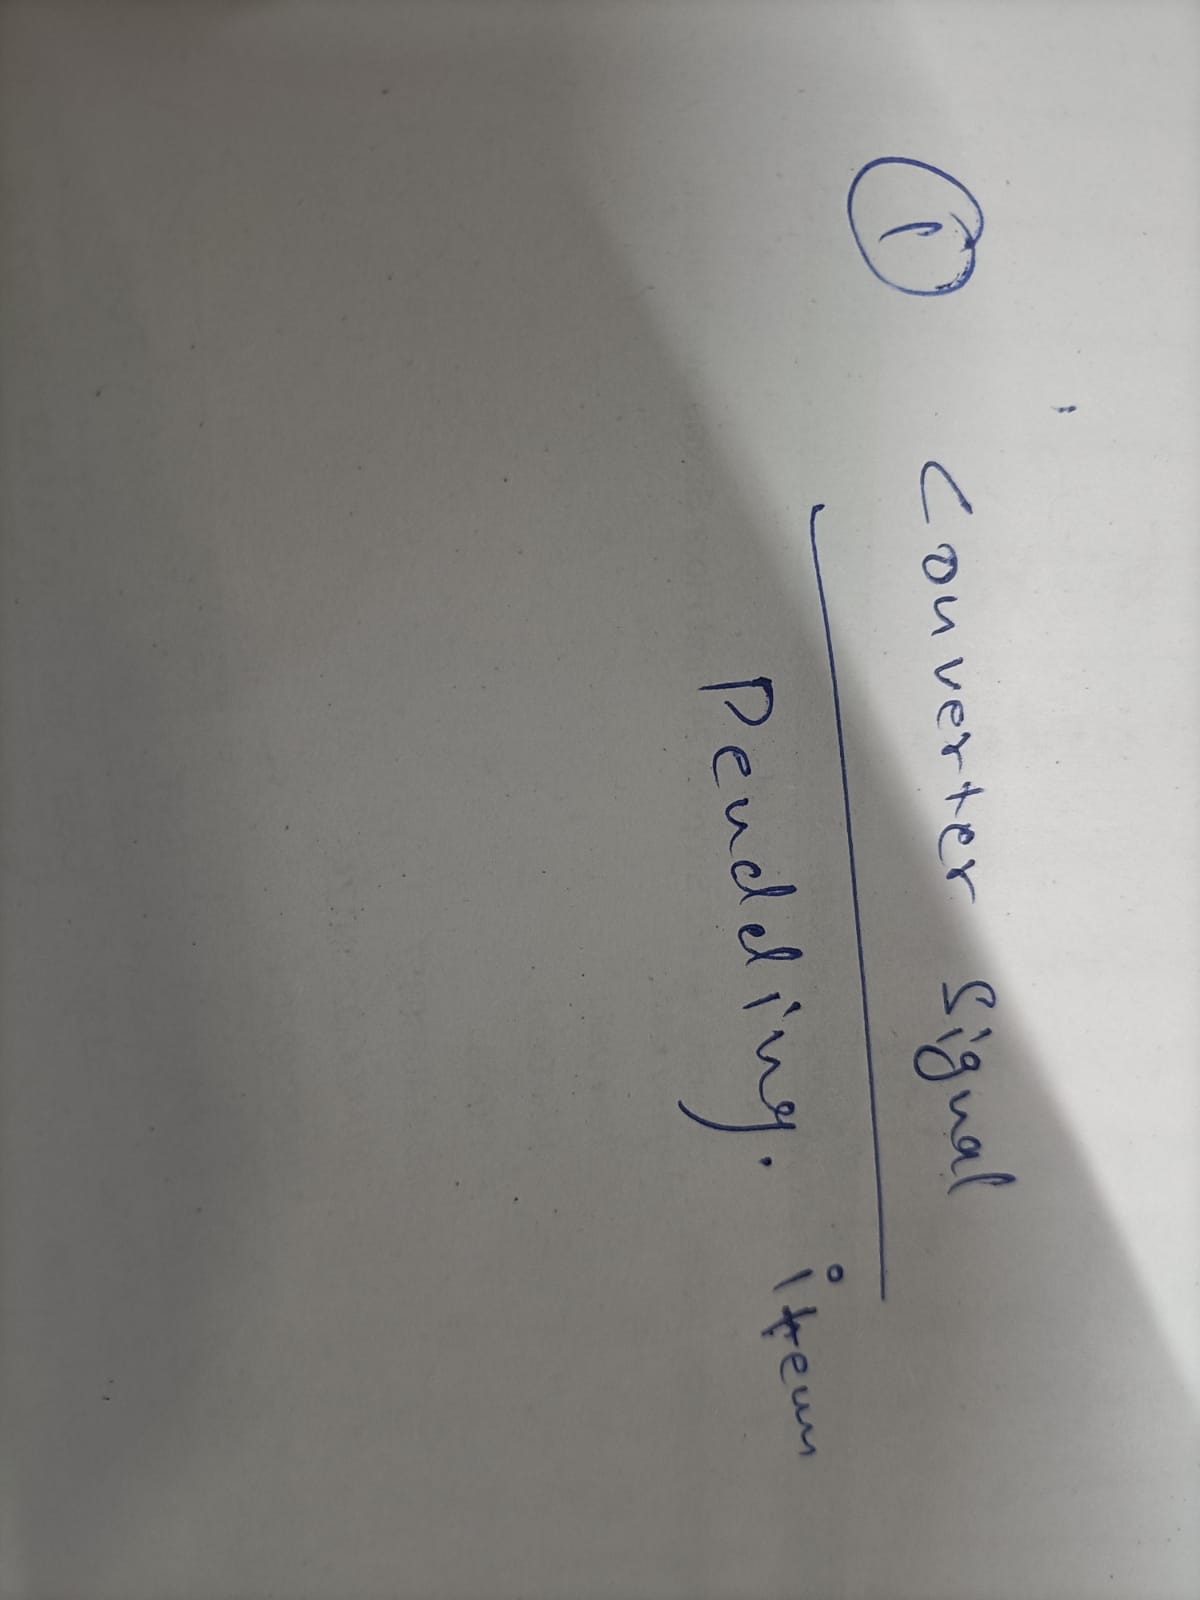 ① Converter Signal
Pendding. item